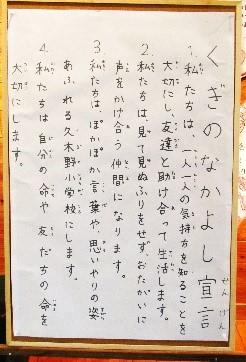 くぎのなかよし宣言
1. 私たちは、一人一人の気持ちを知ることを
大切にし、友達と助け合って生活します。
2. 私たちは、見て見ぬふりをせず、おたがいに
声をかけ合う仲間になります。
3. 私たちは、ぽかぽか言葉や、思いやりの姿
あふれる久木野小学校にします。
4. 私たちは自分の命や友だちの命を
大切にします。